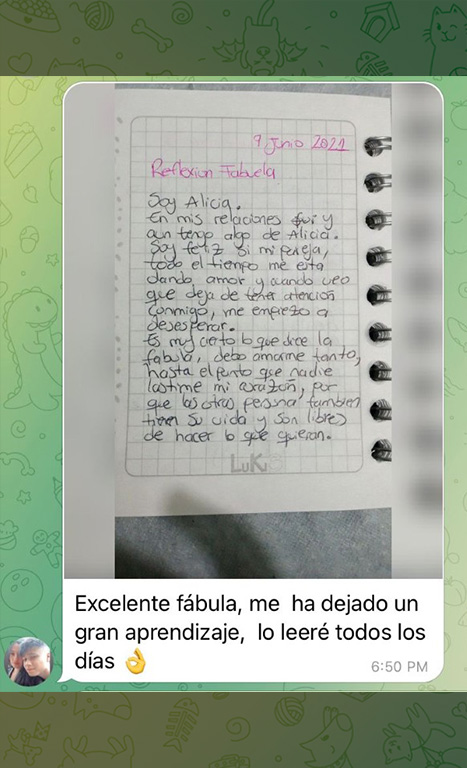 9 Junio 2022
Reflexion Fabuela
Soy Alicia.
En mis relaciones fui y
aun tengo algo de Alicia.
Soy feliz si mi pareja,
todo el tiempo me esta
dando amor y cuando veo
que deja de tener atención
conmigo, me empiezo a
desesperar.
Es muy cierto lo que dice la
fabula, debo amarme tanto,
hasta el punto que nadie
lastime mi corazón, por
que las otras persona, tambien
tienen su vida y son libres
de hacer lo que quieran.
LuKu
Excelente fábula, me ha dejado un
gran aprendizaje, lo leeré todos los
días 👌
6:50 PM